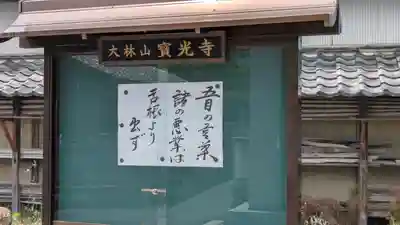 大林山寳光寺
五月の言葉
諸の悪業は
舌根より
出ず